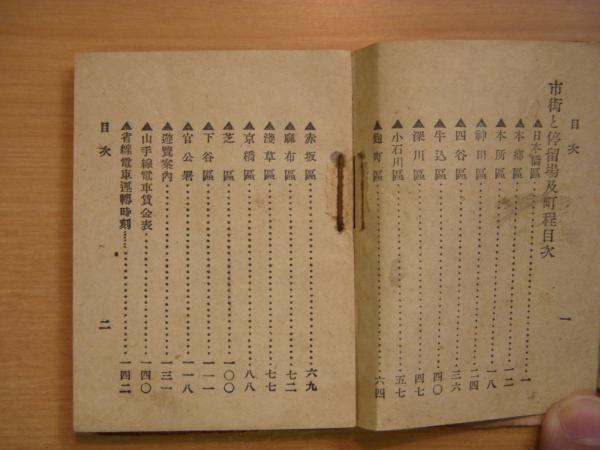 目次
市街と停留場及町程目次
▲日本橋區……一
▲本鄕區……一二
▲本所區……一八
▲神田區……二四
▲四谷區……三六
▲牛込區……四〇
▲深川區……四七
▲小石川區……五七
▲麴町區……六四
一
▲赤坂區……六九
▲麻布區……七二
▲淺草區……七七
▲京橋區……八八
▲芝區……一〇〇
▲下谷區……一一一
▲官公署……一一八
▲遊覽案內……一三一
▲山手線電車賃金表……一四〇
▲省線電車運轉時刻……一四二
目次
二